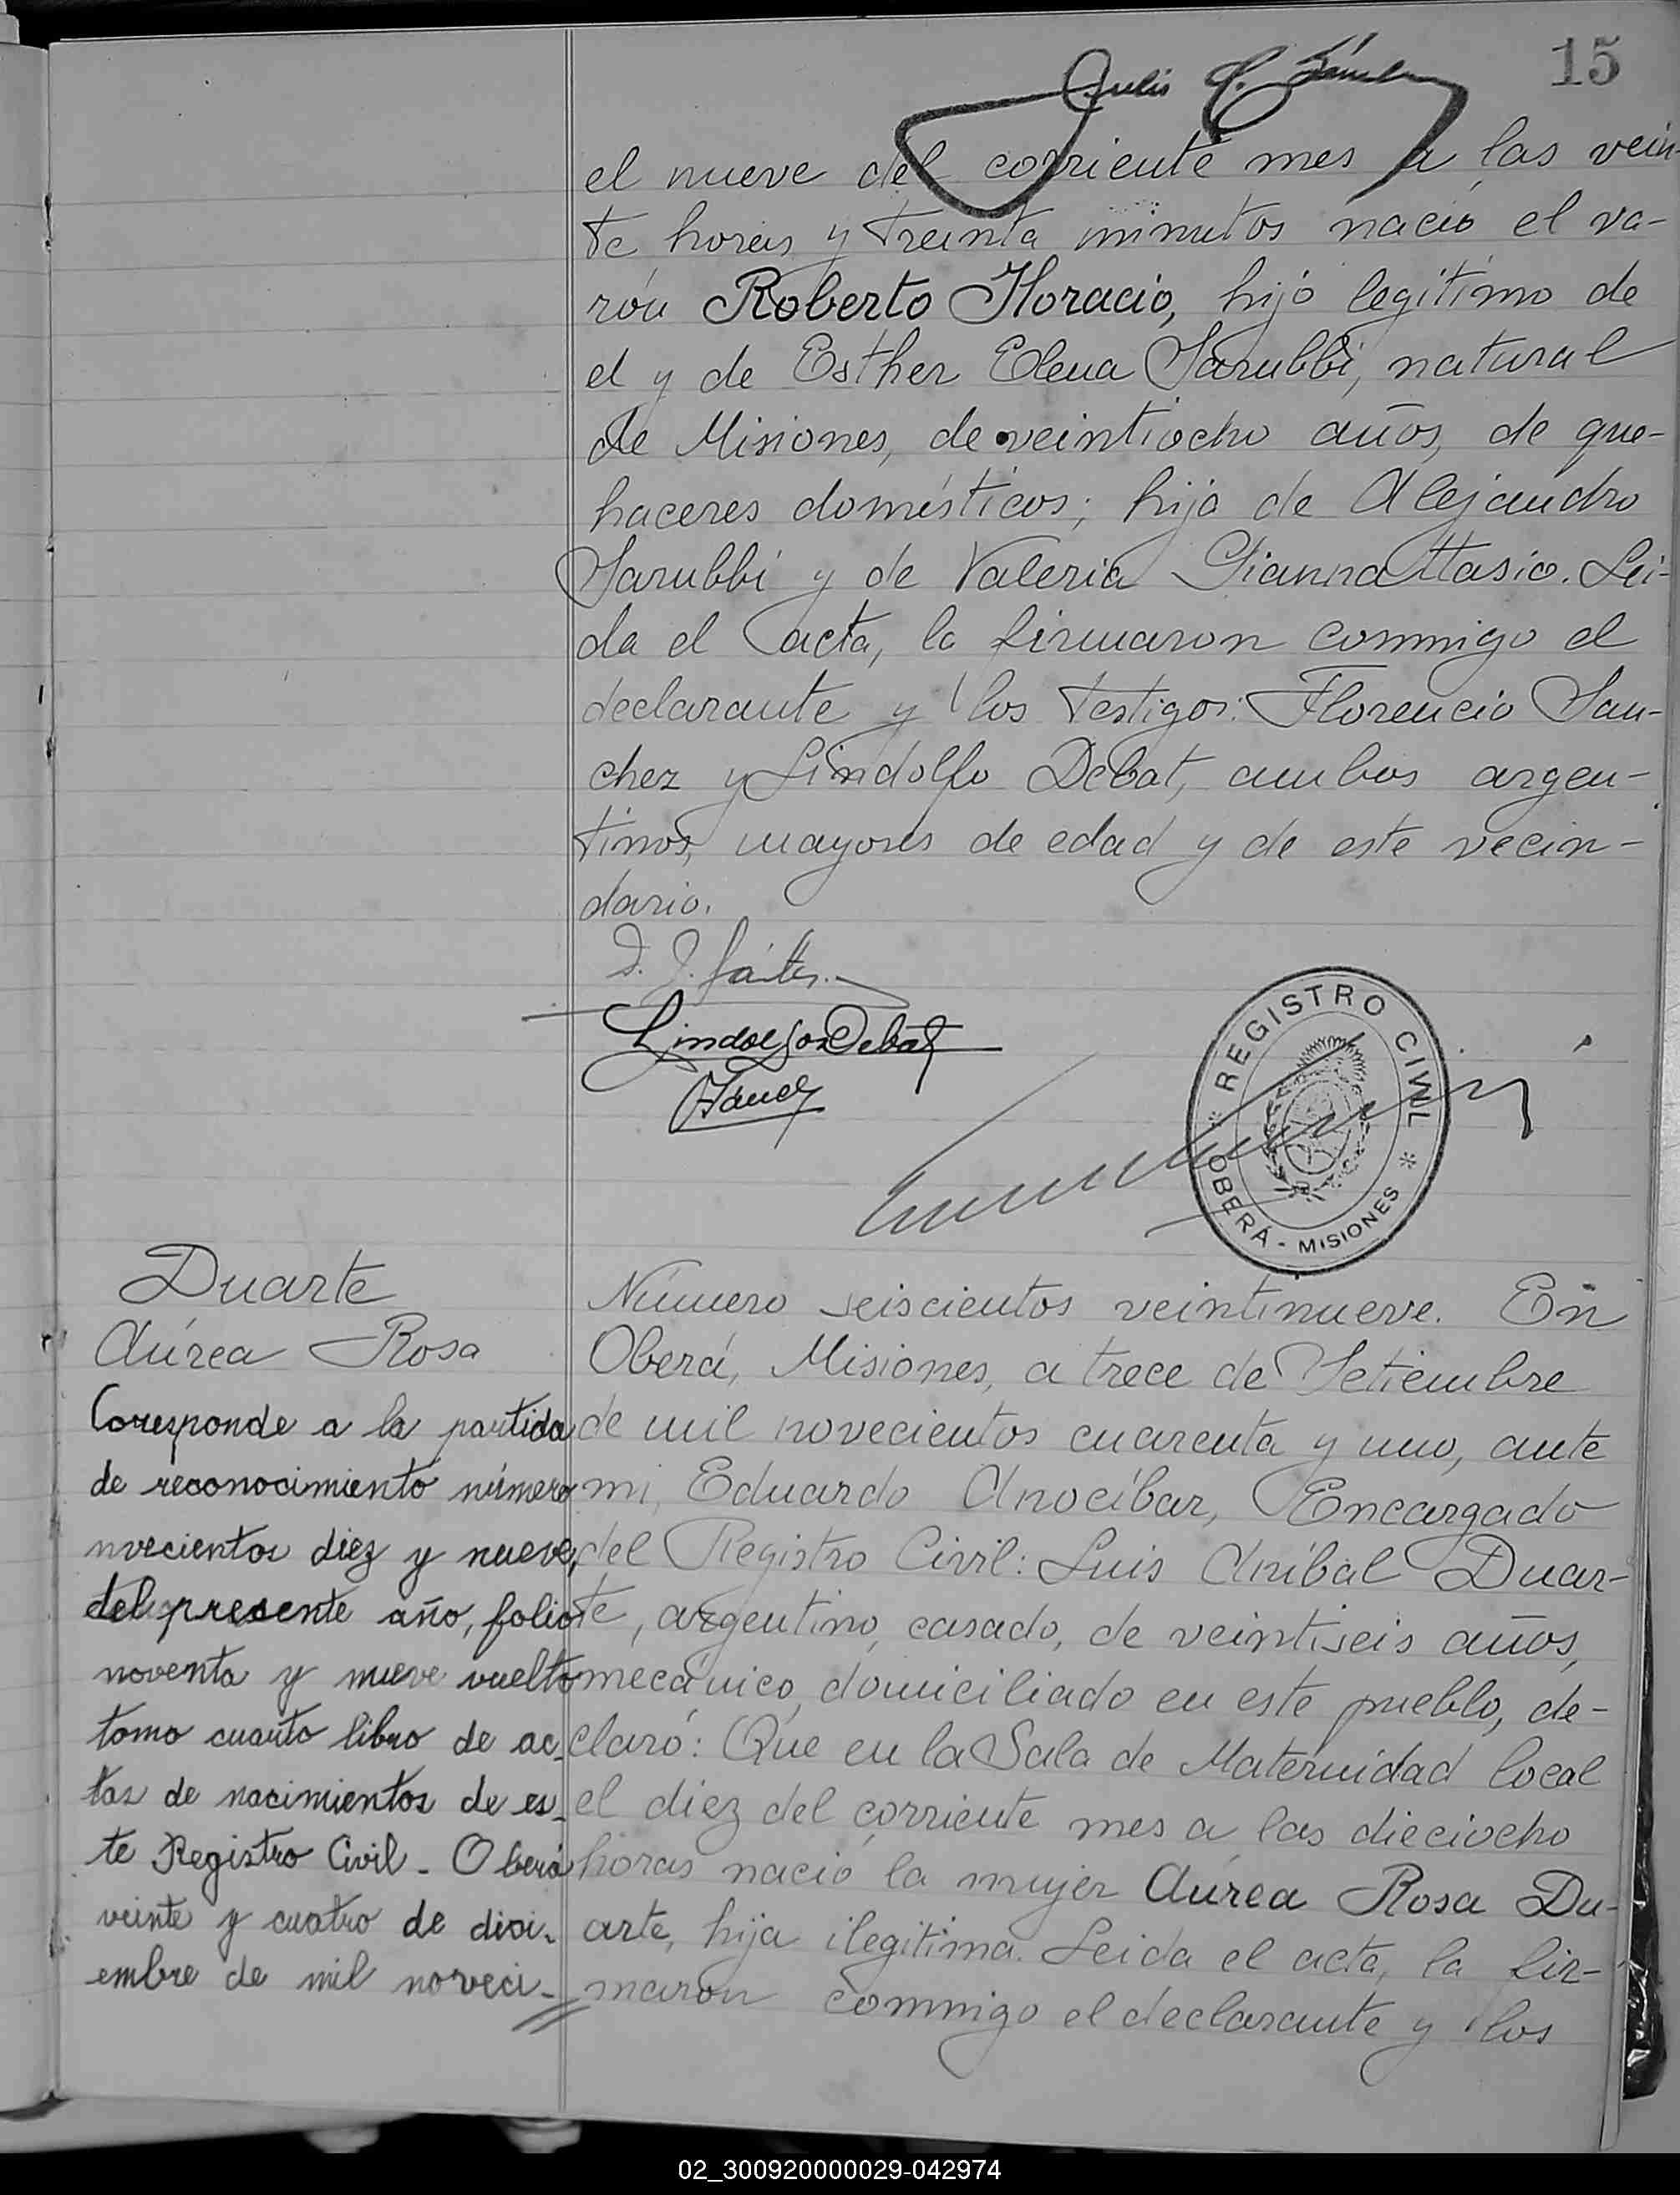 15
el nueve del corriente mes a las vein-
te horas y treinta minutos nació el va-
rón Roberto Horacio, hijo legítimo de
el y de Esther Elena Sarubbi, natural
de Misiones, de veintiocho años, de que-
haceres domésticos; hija de Alejandro
Sarubbi y de Valeria Giannattasio. Lei-
da el acta, la firmaron conmigo el
declarante y los testigos: Florencio San-
chez y Lindolfo Debat, ambos argen-
tinos, mayores de edad y de este vecin-
dario.
Lindolfo Debat
REGISTRO CIVIL
OBERÁ - MISIONES
Duarte
Aúrea Rosa
Corresponde a la partida
de reconocimiento número
novecientos diez y nueve,
del presente año, folio
noventa y nueve vuelto
tomo cuarto libro de ac-
tas de nacimientos de es-
te Registro Civil - Oberá
veinte y cuatro de dici-
embre de mil noveci-
Número seiscientos veintinueve. En
Oberá, Misiones, a trece de Setiembre
de mil novecientos cuarenta y uno, ante
mi, Eduardo Anocíbar, Encargado
del Registro Civil: Luis Aníbal Duar-
te, argentino, casado, de veintiseis años,
mecánico, domiciliado en este pueblo, de-
claró: Que en la Sala de Maternidad local
el diez del corriente mes a las dieciocho
horas nació la mujer Aúrea Rosa Du-
arte, hija ilegitima. Leida el acta, la fir-
maron conmigo el declarante y los
02_300920000029-042974